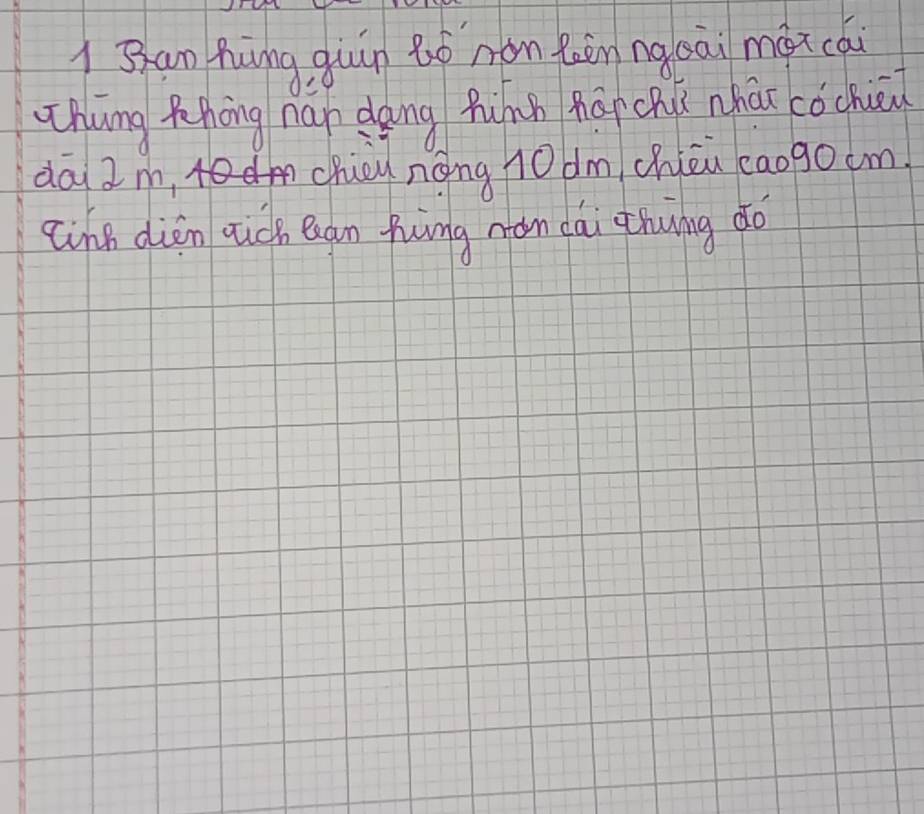 1 Bạn hùng giúp bố sơn bên ngoài một cái
thùng không nắp dạng hình hộp chữ nhật có chiều
dài 2 m, 10dm chiều rộng 10 dm, chiều cao 90 cm.
tính diện tích bạn hùng sơn cái thùng đó